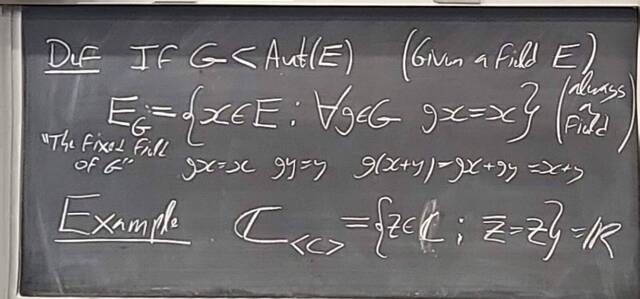 Def If G < Aut(E) (Given a field E)
E_G := {x∈E ; ∀g∈G gx=x} (always a field)
"The Fixed Field of G" gx=x gy=y g(x+y)=gx+gy=x+y
Example ℂ_<C> = {z∈ℂ ; z̅=z} = ℝ